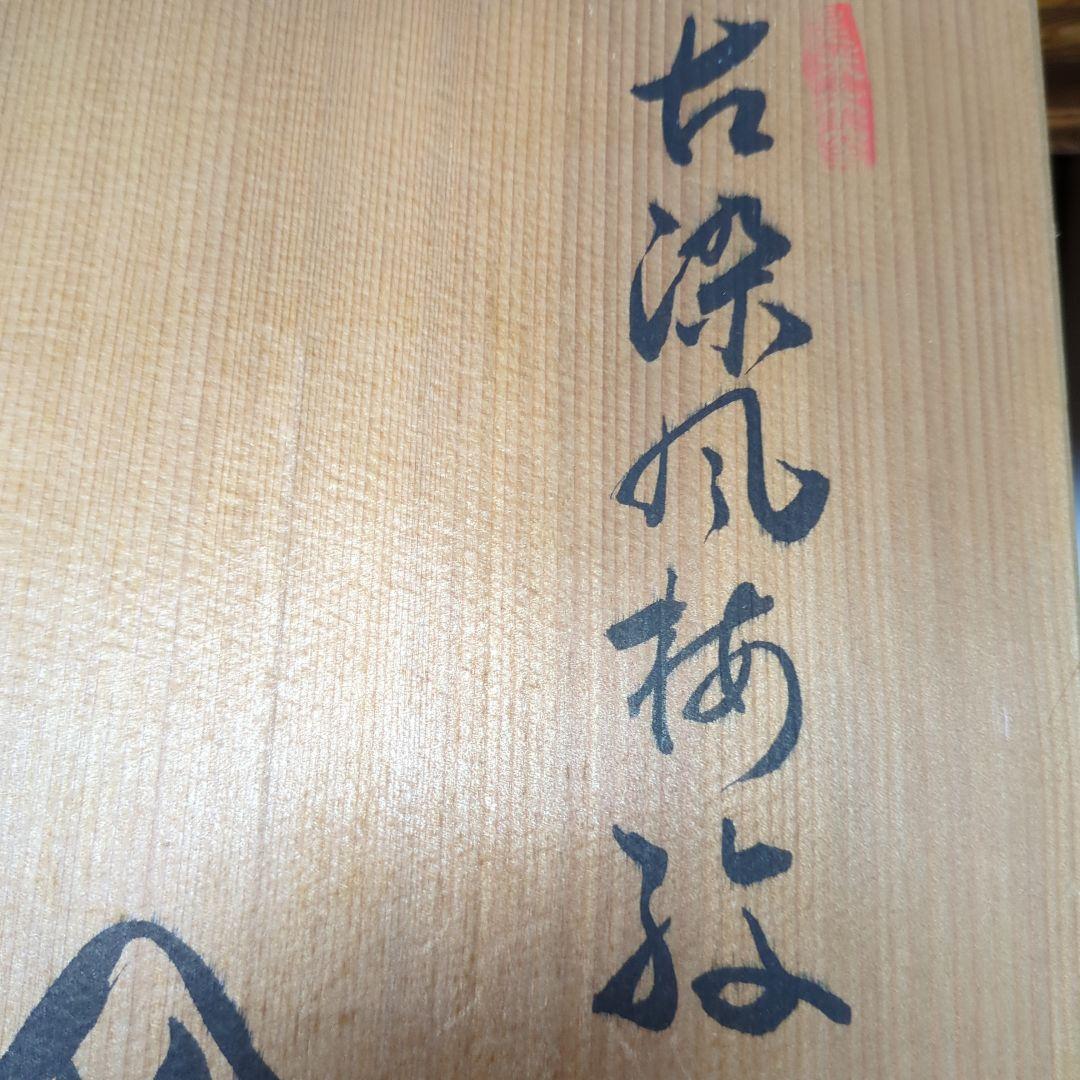 古染風梅紋